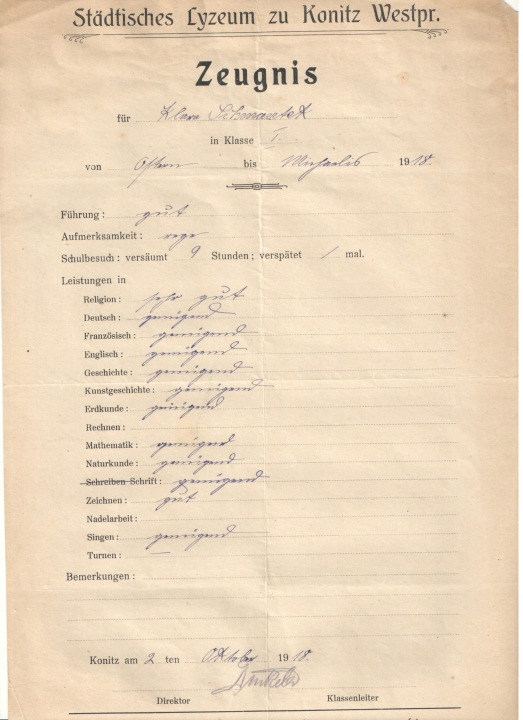 Städtisches Lyzeum zu Konitz Westpr.
Zeugnis
für Klara
in Klasse I.
von Ostern bis Michaelis 1918.
Führung: gut
Aufmerksamkeit: rege
Schulbesuch: versäumt 9 Stunden; verspätet / mal.
Leistungen in
Religion: sehr gut
Deutsch: genügend
Französisch: genügend
Englisch: genügend
Geschichte: genügend
Kunstgeschichte: genügend
Erdkunde: genügend
Rechnen:
Mathematik: genügend
Naturkunde: genügend
Schreiben Schrift: genügend
Zeichnen: gut
Nadelarbeit:
Singen: genügend
Turnen: —
Bemerkungen:
Konitz am 2 ten Oktober 1918.
Direktor Klassenleiter